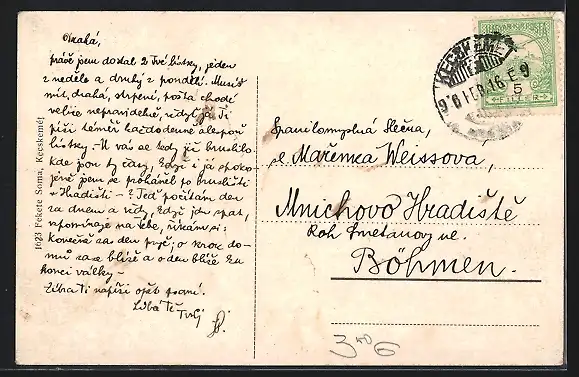 Drahá,
právě jem dostal 2 Tvé lístky, jeden
z neděle a druhý z pondělí. Musíš
mít, drahá, strpení, pošta chodí
velice nepravidelně, vždyť já Ti
píši téměř každodenně alespoň
lístky. – U vás se tedy již bruslilo.
kde jsou ty časy, když i já
jsem se proháněl po bruslišti
v Hradišti – ? Teď počítám den
za dnem a vždy, když jdu spat,
vzpomínaje na Tebe, říkám si:
konečně zas den pryč; o krok do-
mů zase blíže a o den blíže ku
konci války –
Zítra Ti napíši opět psaní.
Líbá Tě
Tvůj
1623 Fekete Soma, Kecskemét
KECSKEMÉT
916 FEB 16 E 9
MAGYAR KIR. POSTA
5
FILLER
Spanilomyslná Slečna,
sl. Mařenka Weissova,
Mnichovo Hradiště
Roh Smetanovy ul.
Böhmen.